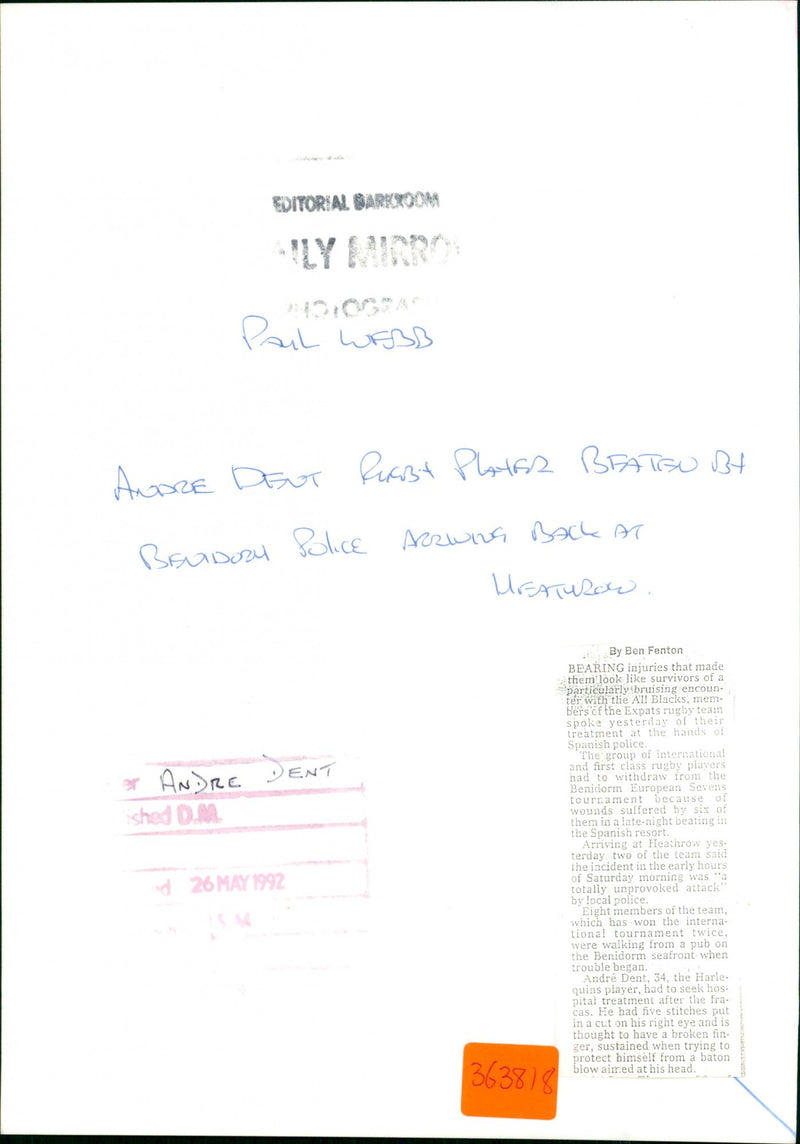 EDITORIAL DARKROOM
AILY MIRRO
PHOTOGRA
PAUL WEBB
ANDRE DENT RUGBY PLAYER BEATEN BY
BENIDORM POLICE ARRIVING BACK AT
HEATHROW.
By Ben Fenton
BEARING injuries that made
them look like survivors of a
particularly bruising encoun-
ter with the All Blacks, mem-
bers of the Expats rugby team
spoke yesterday of their
treatment at the hands of
Spanish police.
The group of international
and first class rugby players
had to withdraw from the
Benidorm European Sevens
tournament because of
wounds suffered by six of
them in a late-night beating in
the Spanish resort.
Arriving at Heathrow yes-
terday two of the team said
the incident in the early hours
of Saturday morning was "a
totally unprovoked attack"
by local police.
Eight members of the team,
which has won the interna-
tional tournament twice,
were walking from a pub on
the Benidorm seafront when
trouble began.
André Dent, 34, the Harle-
quins player, had to seek hos-
pital treatment after the fra-
cas. He had five stitches put
in a cut on his right eye and is
thought to have a broken fin-
ger, sustained when trying to
protect himself from a baton
blow aimed at his head.
er ANDRE DENT
ished D.M.
d 26 MAY 1992
363818